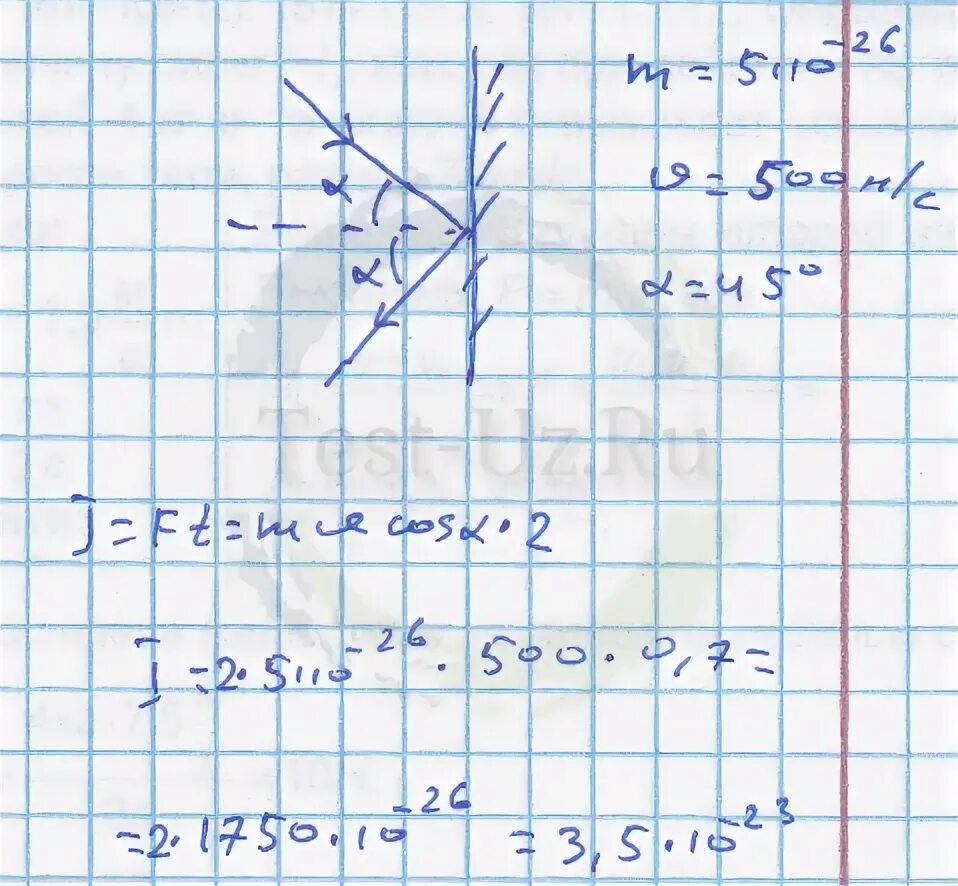 m = 5·10⁻²⁶
α
ϑ = 500 м/с
α
α = 45°
Test-Uz.Ru
J = Ft = mϑ cosα · 2
J = 2·5·10⁻²⁶ · 500 · 0,7 =
= 2·1750·10⁻²⁶ = 3,5·10⁻²³